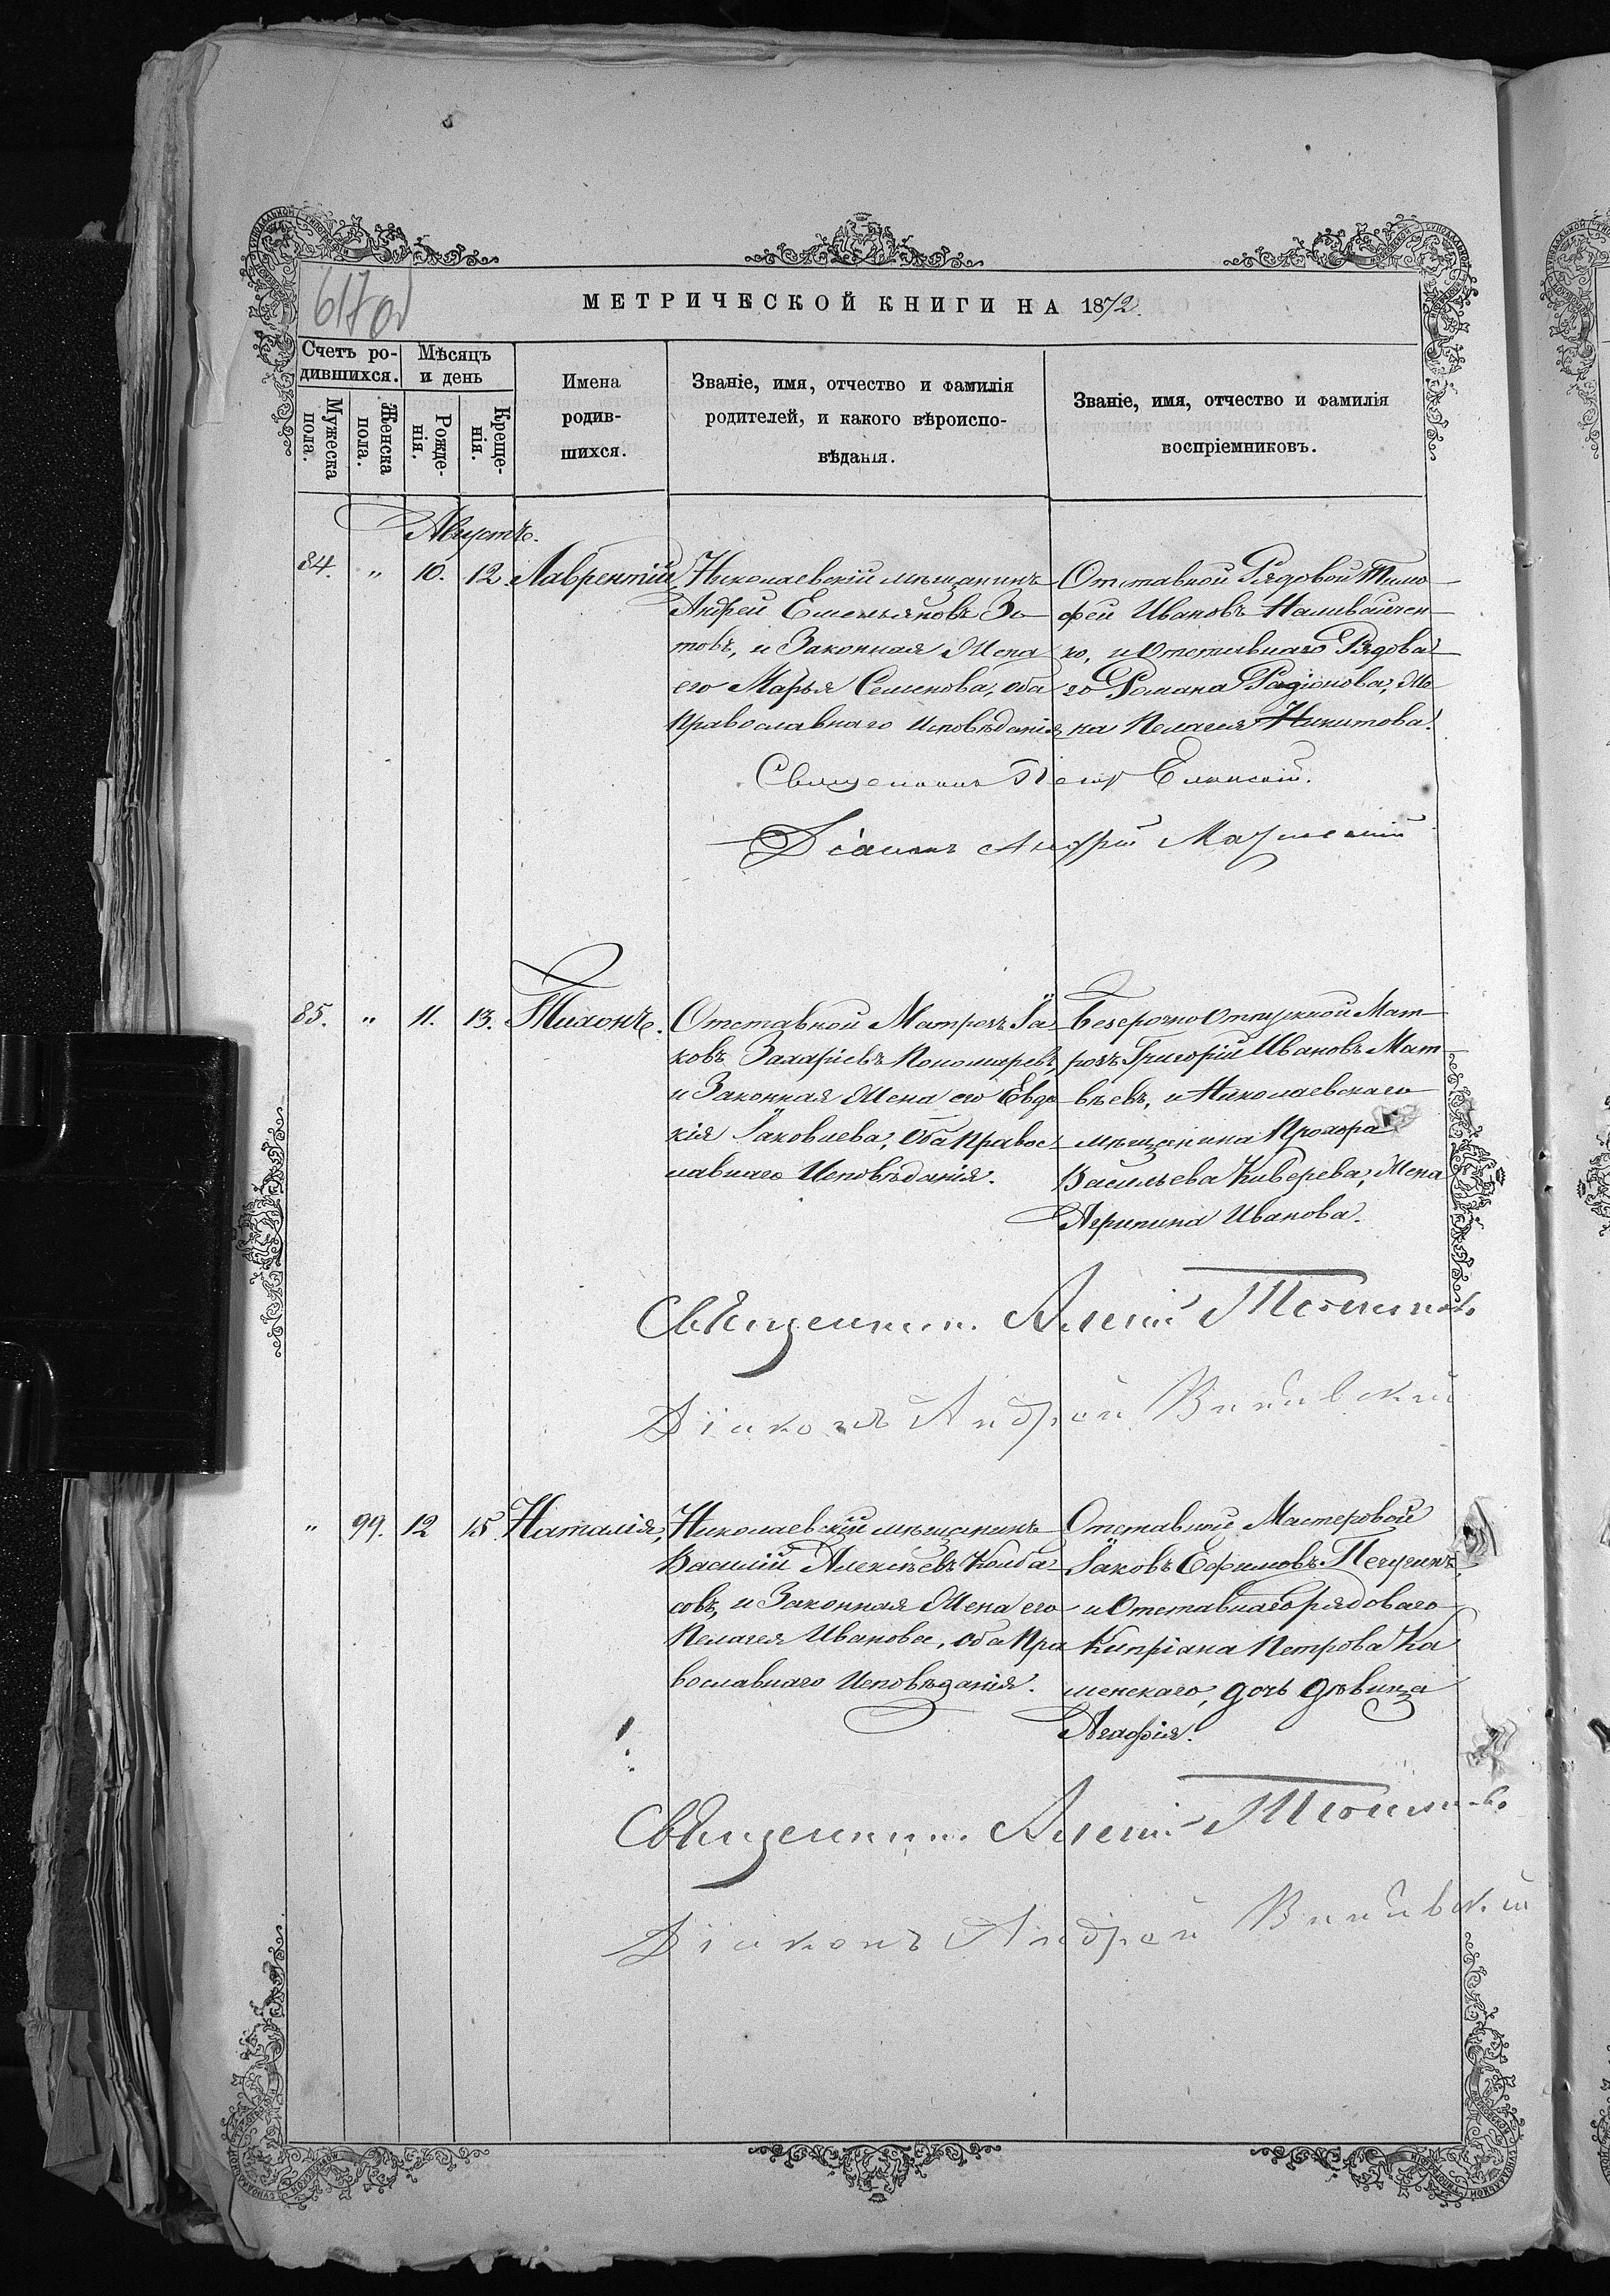 617 об
МЕТРИЧЕСКОЙ КНИГИ НА 1872.
Счетъ ро-
дившихся.
Мужеска
пола.
Женска
пола.
Мѣсяцъ
и день
Рожде-
нія.
Креще-
нія.
Имена
родив-
шихся.
Званіе, имя, отчество и фамилія
родителей, и какого вѣроиспо-
вѣданія.
Званіе, имя, отчество и фамилія
воспріемниковъ.
Августъ.
84. " 10. 12. Лаврентій
Николаевскій мѣщанинъ
Андрей Емельяновъ Зо-
товъ, и Законная Жена
его Марья Семенова, оба
Православнаго Исповѣданія
Отставной Рядовой Тимо-
фей Ивановъ Наливайчен-
ко, и Отставнаго Рядова-
го Романа Радіонова, Же-
на Пелагея Никитова.
Священникъ Петр
Діаконъ Андрей
85. " 11. 13. Тихонъ.
Отставной Матрозъ Іа-
ковъ Захаріевъ Пономаревъ,
и Законная Жена его Евдо-
кія Іаковлева, Оба Правос-
лавнаго Исповѣданія.
Безсрочно Отпускной Мат-
розъ Григорій Ивановъ Мат-
вѣевъ, и Николаевскаго
мѣщанина Прохора
Васильева Киверева, Жена
Агрипина Иванова.
Священникъ Алексій
Діаконъ Андрей
" 99. 12 15 Наталія,
Николаевскій мѣщанинъ
Василій Алексѣевъ Колба-
совъ, и Законная Жена его
Пелагея Иванова, Оба Пра-
вославнаго Исповѣданія.
Отставной Мастеровой
Іаковъ Ефимовъ
и Отставнаго рядоваго
Кипріана Петрова Ка-
менскаго, дочь дѣвица
Агафія.
Священникъ Алексій
Діаконъ Андрей